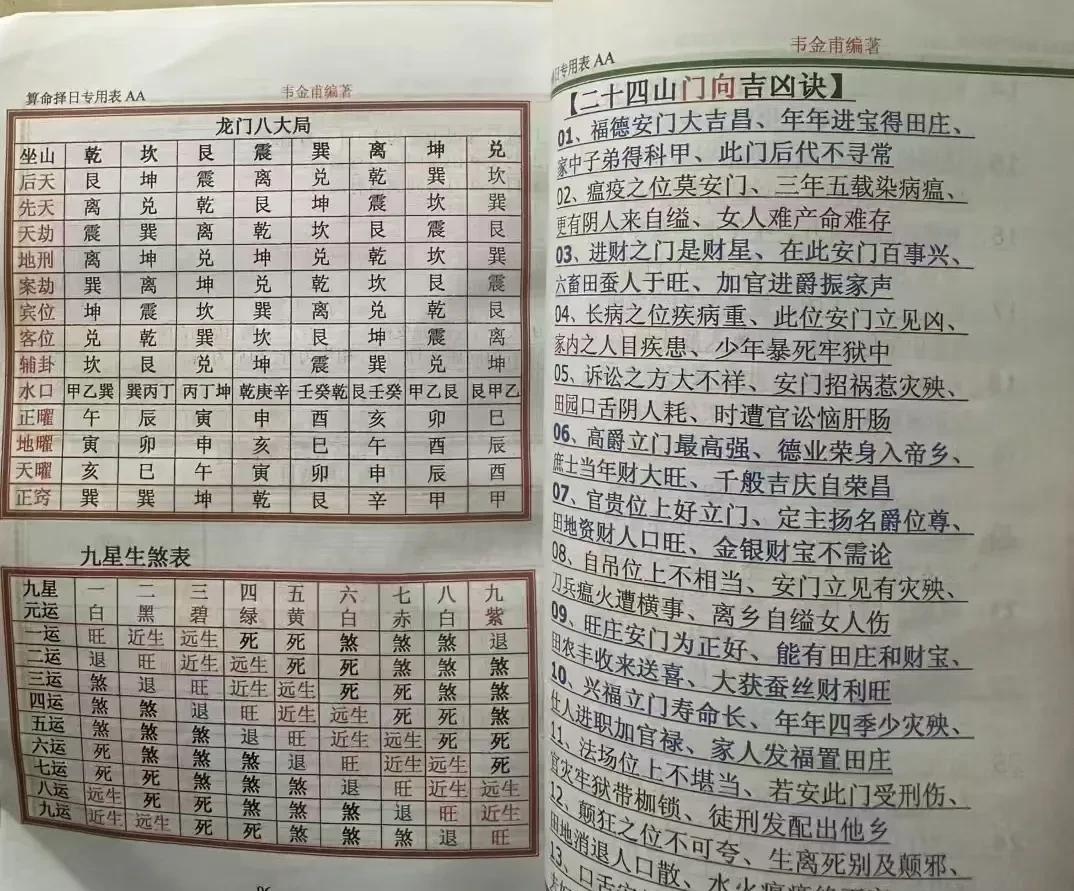 算命择日专用表 AA
韦金甫编著
龙门八大局
坐山 乾 坎 艮 震 巽 离 坤 兑
后天 艮 坤 震 离 兑 乾 巽 坎
先天 离 兑 乾 艮 坤 震 坎 巽
天劫 震 巽 离 乾 坎 艮 震 艮
地刑 离 坤 兑 坤 兑 乾 坎 巽
案劫 巽 离 坤 兑 乾 坎 艮 震
宾位 坤 震 坎 巽 离 兑 乾 艮
客位 兑 乾 巽 坎 艮 坤 震 离
辅卦 坎 艮 兑 坤 震 巽 兑 坤
水口 甲乙巽 巽丙丁 丙丁坤 乾庚辛 壬癸乾 艮壬癸 甲乙艮 艮甲乙
正曜 午 辰 寅 申 酉 亥 卯 巳
地曜 寅 卯 申 亥 巳 午 酉 辰
天曜 亥 巳 午 寅 卯 申 辰 酉
正窍 巽 巽 坤 乾 艮 辛 甲 甲
九星生煞表
九星 一 二 三 四 五 六 七 八 九
元运 白 黑 碧 绿 黄 白 赤 白 紫
一运 旺 近生 远生 死 死 煞 煞 煞 退
二运 退 旺 近生 远生 死 死 煞 煞 煞
三运 煞 退 旺 近生 远生 死 死 煞 煞
四运 煞 煞 退 旺 近生 远生 死 死 煞
五运 煞 煞 煞 退 旺 近生 远生 死 死
六运 死 煞 煞 煞 退 旺 近生 远生 死
七运 死 死 煞 煞 煞 退 旺 近生 远生
八运 远生 死 死 煞 煞 煞 退 旺 近生
九运 近生 远生 死 死 煞 煞 煞 退 旺
日专用表 AA
韦金甫编著
【二十四山门向吉凶诀】
01、福德安门大吉昌、年年进宝得田庄、
家中子弟得科甲、此门后代不寻常
02、瘟疫之位莫安门、三年五载染病瘟、
更有阴人来自缢、女人难产命难存
03、进财之门是财星、在此安门百事兴、
六畜田蚕人于旺、加官进爵振家声
04、长病之位疾病重、此位安门立见凶、
家内之人目疾患、少年暴死牢狱中
05、诉讼之方大不祥、安门招祸惹灾殃、
田园口舌阴人耗、时遭官讼恼肝肠
06、高爵立门最高强、德业荣身入帝乡、
庶士当年财大旺、千般吉庆自荣昌
07、官贵位上好立门、定主扬名爵位尊、
田地资财人口旺、金银财宝不需论
08、自吊位上不相当、安门立见有灾殃、
刀兵瘟火遭横事、离乡自缢女人伤
09、旺庄安门为正好、能有田庄和财宝、
田农丰收来送喜、大获蚕丝财利旺
10、兴福立门寿命长、年年四季少灾殃、
仕人进职加官禄、家人发福置田庄
11、法场位上不堪当、若安此门受刑伤、
官灾牢狱带枷锁、徒刑发配出他乡
12、颠狂之位不可夸、生离死别及颠邪、
田地消退人口散、水火瘟
13、口舌安